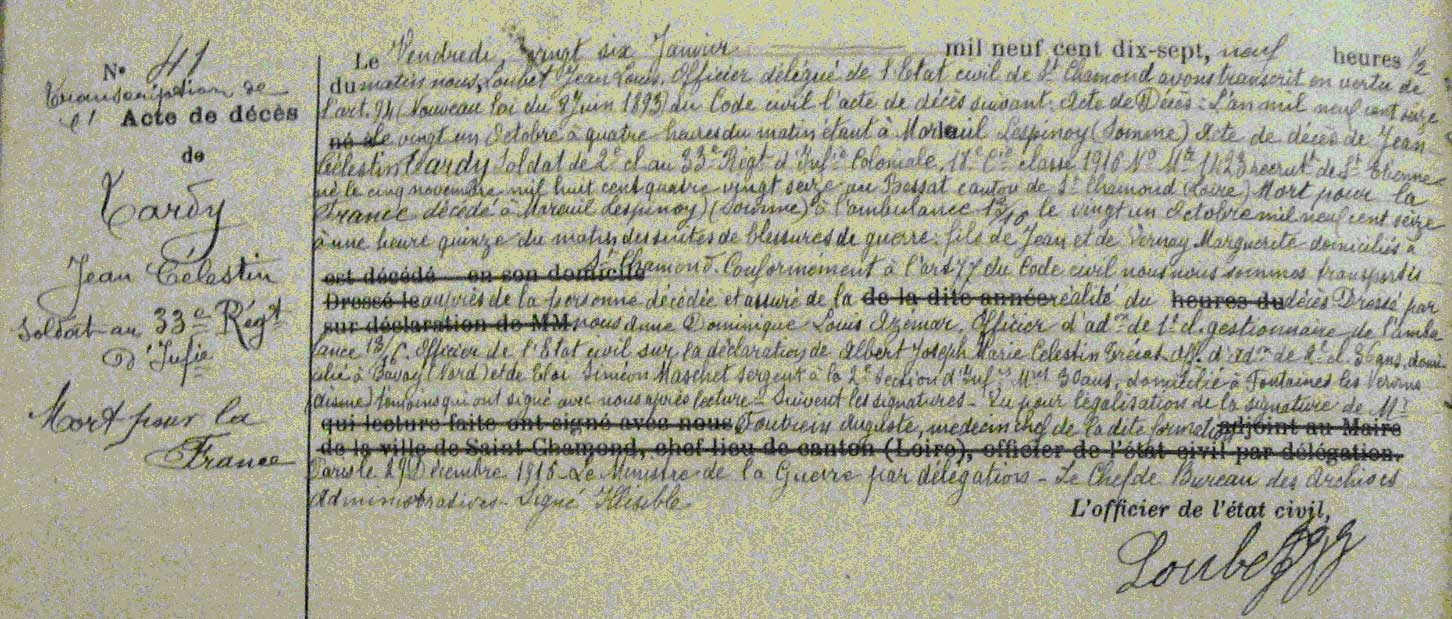 N° 41
Transcription de
l'
Acte de décès
de
Tardy
Jean Célestin
Soldat au 33e Régt
d'Infie
Mort pour la
France
Le Vendredi vingt six Janvier mil neuf cent dix-sept, neuf heures 1/2
du matin nous, Loubet Jean Louis, Officier délégué de l'Etat civil de St Chamond avons transcrit en vertu de
l'art. 94 (Nouveau loi du 8 Juin 1893) du Code civil l'acte de décès suivant. Acte de Décès : L'an mil neuf cent seize
né le vingt un Octobre à quatre heures du matin étant à Mareuil Lespinoy (Somme) Acte de décès de Jean
Célestin Tardy Soldat de 2e cl au 33e Régt d'Infie Coloniale, 18e Cie classe 1916 No Mle 1423 recrutt de St Etienne
né le cinq novembre mil huit cent quatre vingt seize au Bessat canton de St Chamond (Loire) Mort pour la
France décédé à Mareuil Lespinoy) (Somme) à l'ambulance 13/16 le vingt un Octobre mil neuf cent seize
à une heure quinze du matin des suites de blessures de guerre. fils de Jean et de Vernay Marguerite domiciliés à
est décédé en son domicile St Chamond. Conformément à l'art 77 du Code civil nous nous sommes transportés
Dressé le auprès de la personne décédée et assuré de la de la dite année réalité du heures du décès Dressé par
sur déclaration de MM nous Dominique Louis Azémar. Officier d'adm de 1e cl. gestionnaire de l'ambu
lance 13/16. Officier de l'Etat civil sur la déclaration de Albert Joseph Marie Celestin off. d'adon de 2e cl. 36 ans, domi
cilié à Bavay (Nord) et de Eloi Siméon Maschet sergent à la 2e Section d'Infrs Mres 30 ans, domicilié à Fontaines les Vervins
(Aisne) témoins qui ont signé avec nous après lecture - Suivent les signatures - Vu pour légalisation de la signature de Mr
qui lecture faite ont signé avec nous Auguste, medecin chef de la dite formation adjoint au Maire
de la ville de Saint-Chamond, chef-lieu de canton (Loire), officier de l'état civil par délégation.
Paris le Décembre 1916 - Le Ministre de la Guerre par délégation - Le Chef de Bureau des Archives
Administratives - Signé Illisible
L'officier de l'état civil,
Loubet